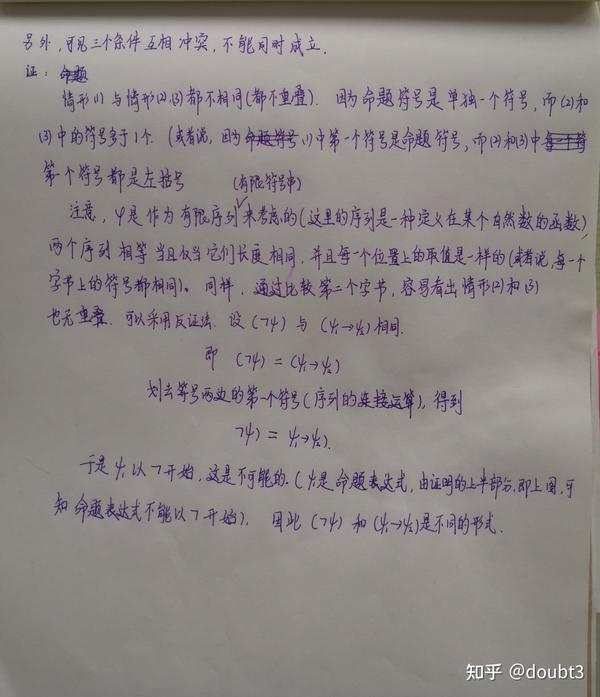 另外,可见三个条件互相冲突,不能同时成立.
证: 命题
情形(1)与情形(2),(3)都不相同(都不重叠). 因为命题符号是单独一个符号,而(2)和
(3)中的符号多于1个. (或者说,因为命题符号(1)中第一个符号是命题符号,而(2)和(3)中每一个符
第一个符号都是左括号
(有限符号串)
注意,φ是作为有限序列来考虑的(这里的序列是一种定义在某个自然数的函数),
两个序列相等当且仅当它们长度相同,并且每一个位置上的取值是一样的(或者说,每一个
字节上的符号都相同)。同样,通过比较第二个字节,容易看出情形(2)和(3)
也无重叠. 可以采用反证法. 设(¬ψ)与(ψ₁→ψ₂)相同.
即 (¬ψ)=(ψ₁→ψ₂)
划去等号两边的第一个符号(序列的连接运算),得到
¬ψ)=ψ₁→ψ₂).
于是ψ₁以¬开始,这是不可能的.(ψ₁是命题表达式,由证明的上半部分,即上图,可
知命题表达式不能以¬开始). 因此(¬ψ)和(ψ₁→ψ₂)是不同的形式.
知乎 @doubt3